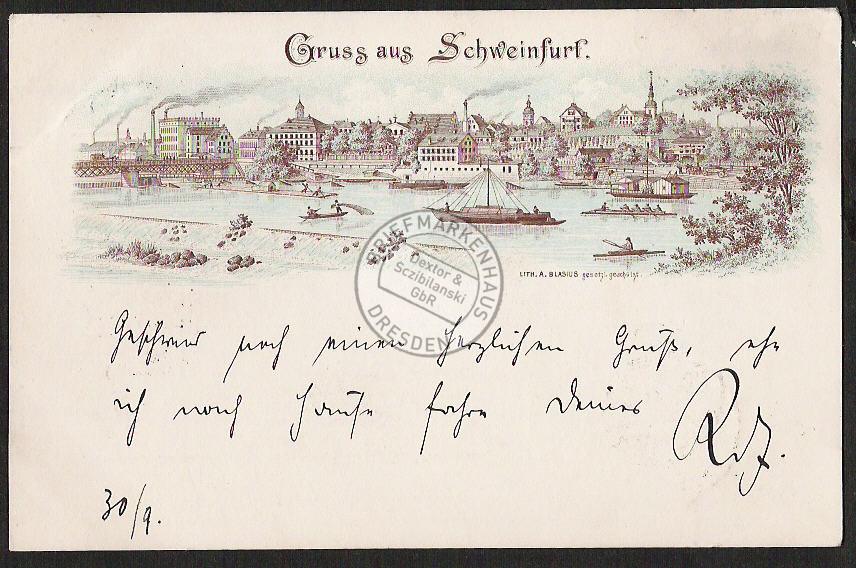 Gruss aus Schweinfurt.
BRIEFMARKENHAUS
Dextor &
Sczibilanski
GbR
DRESDEN
LITH. A. BLASIUS gesetzl. geschützt.
Geschwind noch einen herzlichen Gruß, ehe
ich nach Hause fahre Deines
30/9.